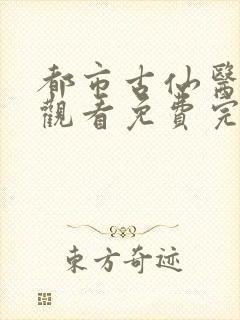 都市古仙醫
觀看免費完
東方奇迹